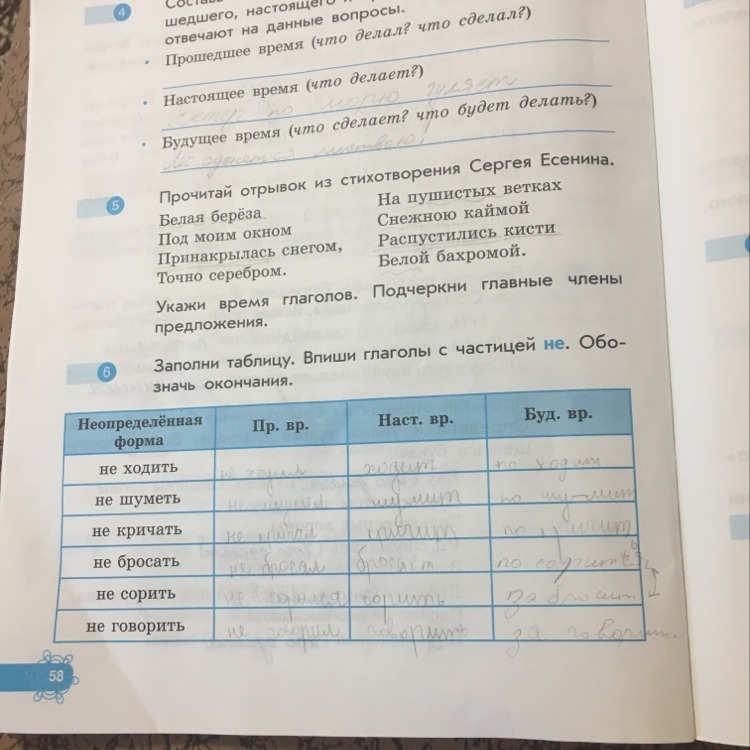 4
шедшего, настоящего
отвечают на данные вопросы.
• Прошедшее время (что делал? что сделал?)
• Настоящее время (что делает?)
по морю гуляет
• Будущее время (что сделает? что будет делать?)
оденется листвою!
5 Прочитай отрывок из стихотворения Сергея Есенина.
Белая берёза
Под моим окном
Принакрылась снегом,
Точно серебром.
На пушистых ветках
Снежною каймой
Распустились кисти
Белой бахромой.
Укажи время глаголов. Подчеркни главные члены
предложения.
6 Заполни таблицу. Впиши глаголы с частицей не. Обо-
значь окончания.
Неопределённая форма Пр. вр. Наст. вр. Буд. вр.
не ходить не ходил ходит по ходит
не шуметь не шумит по шумит
не кричать не кричит по
не бросать не бросал бросает по
не сорить не сорить за бросит
не говорить не говорил говорить за говорит.
58